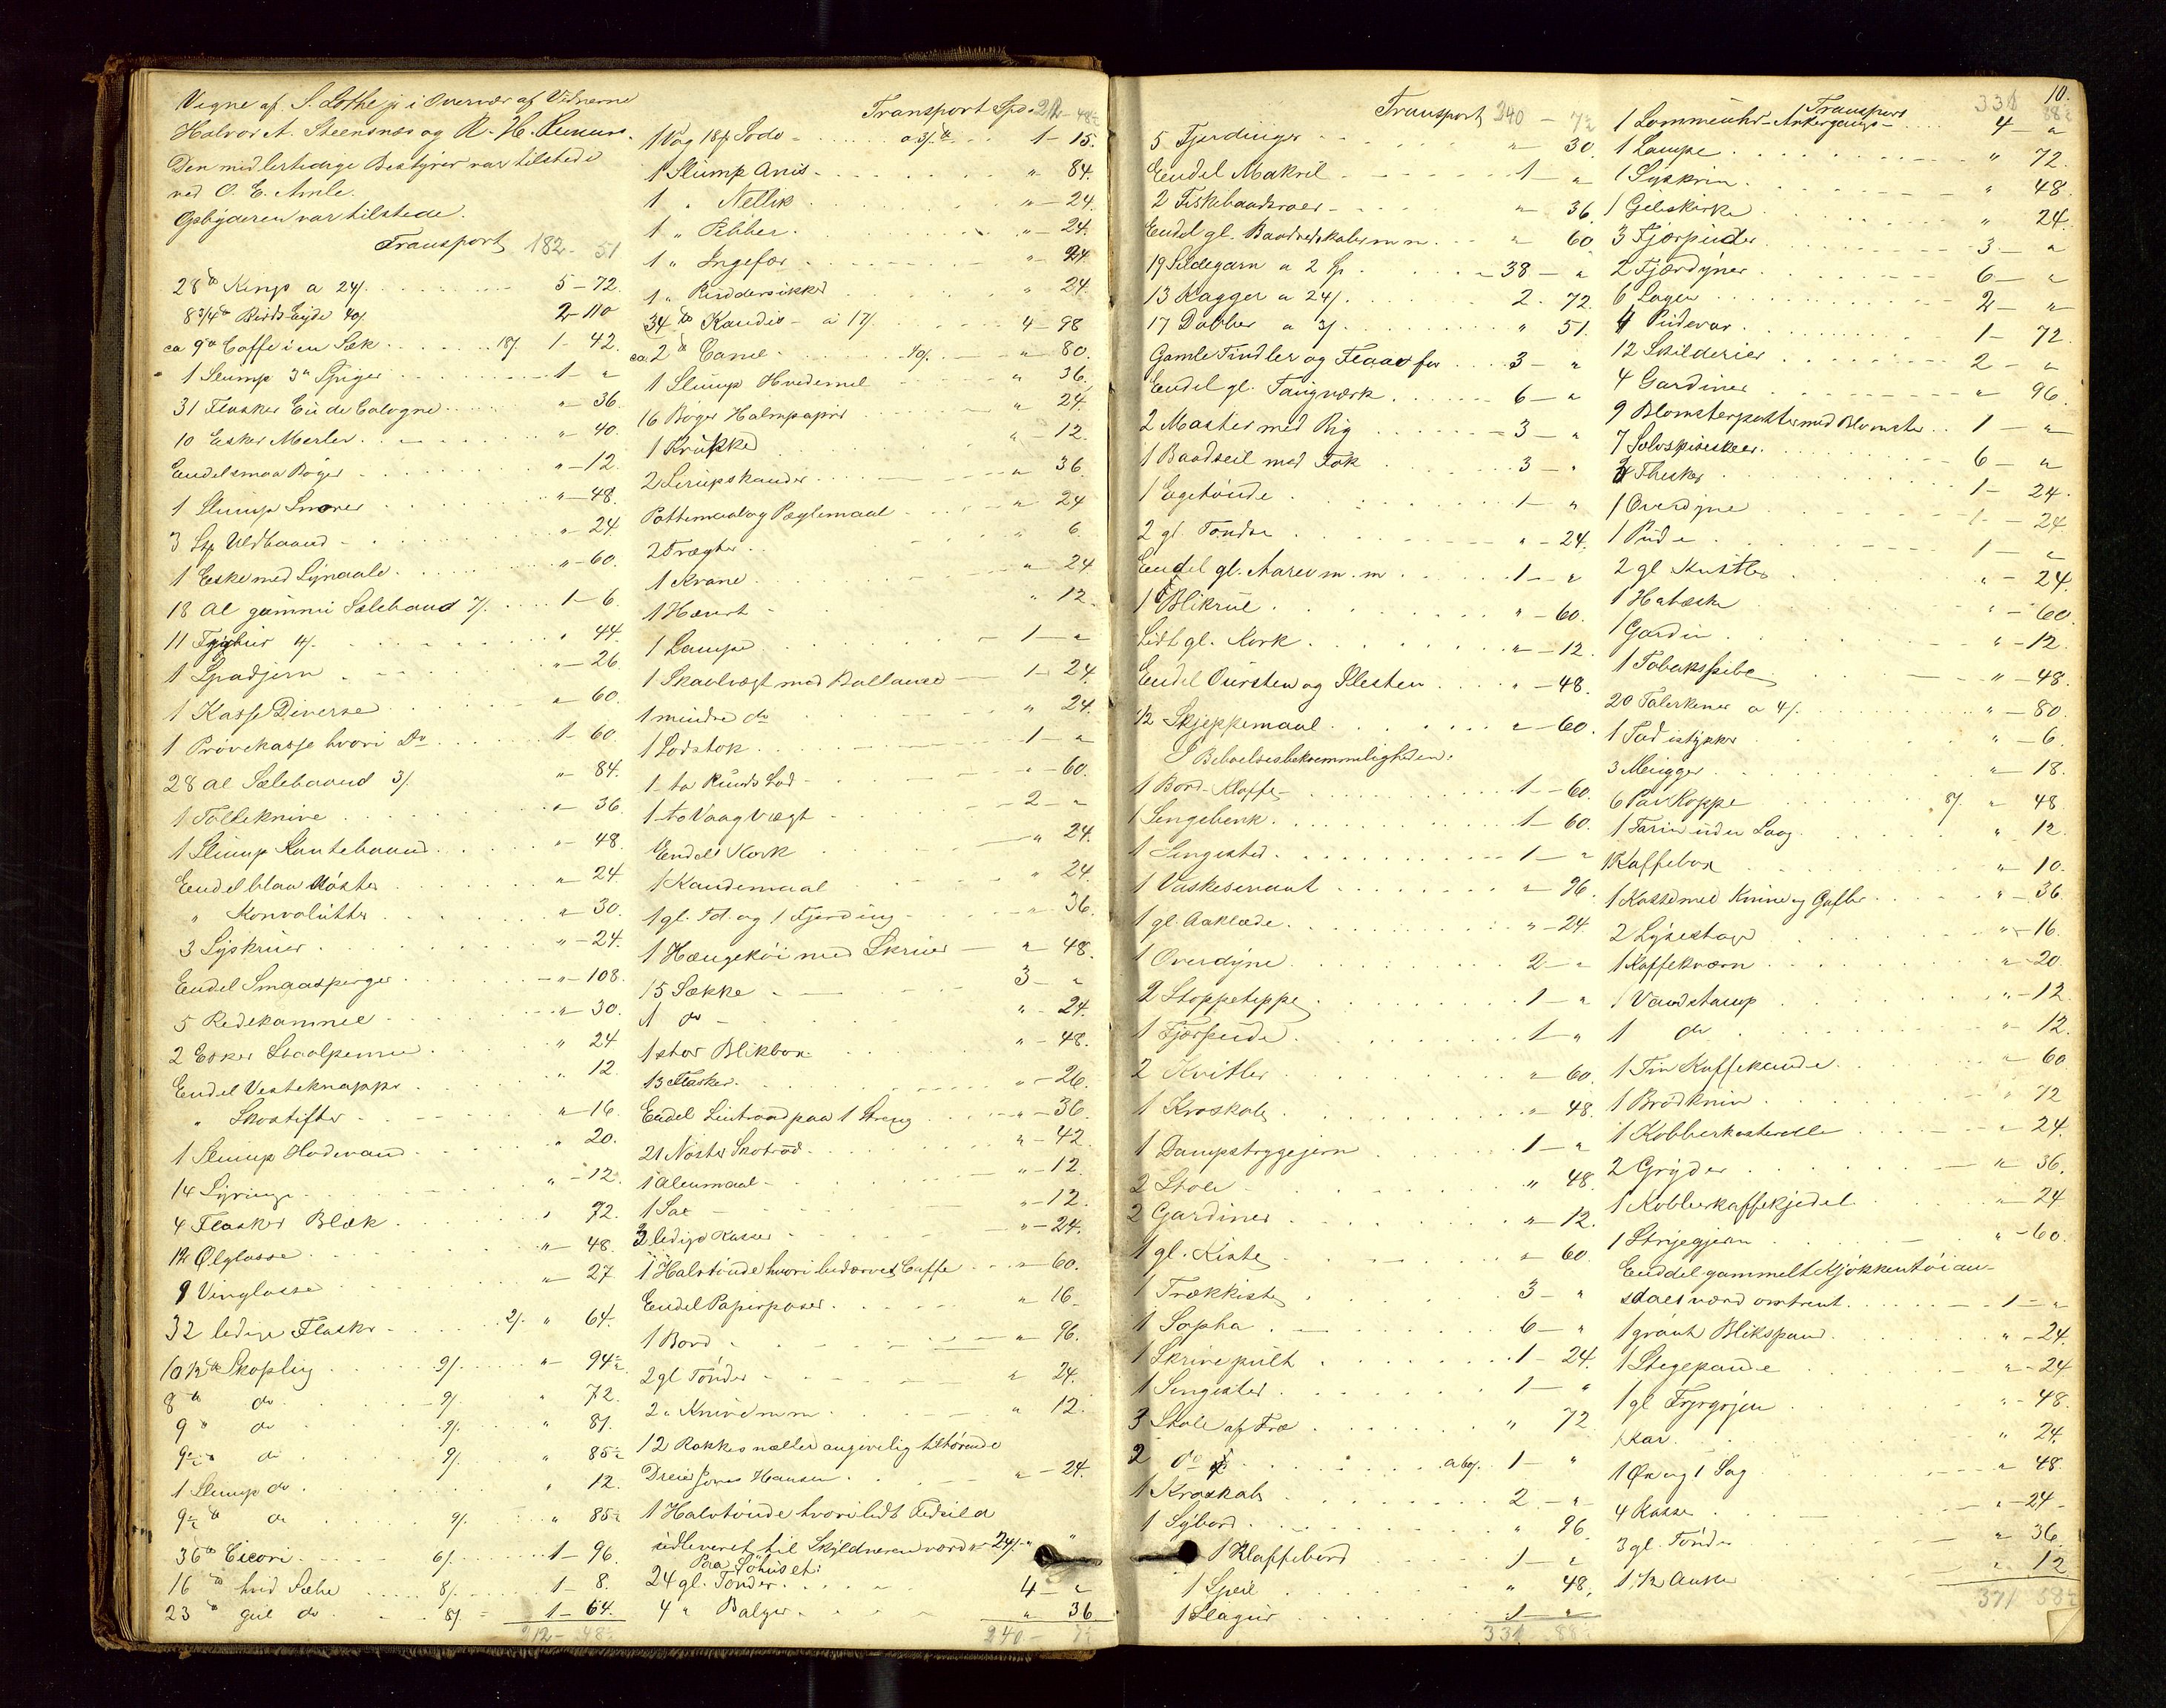 Vegne af S. Lothe jr i Overvær af Vidnerne
Halvor A. Steensnæs og R. H.
Den midlertidige Bestyrer var tilstede
ved O. E. Amle.
Opbyderen var tilstede.
Transport 182 - 51
28 ℔ Rings a 24/. 5 - 72.
8 3/4 ℔ Birds Eyde 40/ 2 - 110
ca 9 ℔ Caffe i en Sæk 18/. 1 - 42.
1 Slump 3" Spiger 1 - "
31 Flasker Eu de Cologne " - 36.
10 Esker Merler " - 40.
Endel smaa Bøger " - 12.
1 Slump Snører " - 48.
3 Uldbaand " - 24
1 Eske med Synaale " - 60.
18 Al gummi Sælebaand 7/. 1 - 6.
11 4/. " 44.
1 Spadjern " - 26.
1 Kasse Diverse " 60.
1 Prøvekasse hvori Do 1 - 60.
28 al Sælebaand 3/. " 84.
1 Tolleknive " 36
1 Slump Kantebaand " 48.
Endel blaa Nøster " 24
" Konvolutter " 30.
3 Syskruer " - 24.
Endel Smaaspiger " - 108.
5 Redekamme " - 30.
2 Esker Staalpenne " 24
Endel Vesteknapper " 12.
" Skostifter " - 16.
1 Slump Hovedvand " 20.
14 Syringe " - 12.
4 Flasker Blæk " 72.
12 Ølglasse " 48.
9 Vinglasse " 27
32 ledige Flasker 2/. " 64.
10 1/2 ℔ Skoplug 9/. " 94 1/2
8 ℔ do 9/. " 72.
9 " do 9/. " 81.
9 1/2 " do 9/. " 85 1/2
1 Slump do " 12.
9 1/2 ℔ do 9/. " 85 1/2
36 ℔ Cicori 6/. 1 - 96.
16 ℔ hvid Sæbe 8/. 1 - 8.
23 ℔ gul do 8/. 1 - 64.
212 - 48 1/2
Transport Spd. 212 - 48 1/2
1 Vog 18 ℔ Sode a 3/. ℔ 1 - 15.
1 Slump Anis " 84.
1 " Nellik " - 24.
1 " Pebber " - 24.
1 " Ingefær " - 24
1 " " 24.
34 ℔ Kandis a 17/. 4 - 98
ca 2 ℔ Canel 40/. " 80.
1 Slump Hvedemel " 36.
16 Bøger Halmpapir " 24.
1 Krukke " - 12.
2 Sirupskander " 36
Pottemaal og Pæglemaal " 24
2 Trægter " 6.
1 Krane " 24
1 Hævert " 12.
1 Lampe 1 - "
1 Skaalvægt med Ballance 1 - 24.
1 mindre do " 24.
1 Lodstok 1 - "
1 to Punds Lod " - 60.
1 to Vaag Vægt 2 - "
Endel Kork " 24.
1 Kandemaal " 24.
1 gl. Td. og 1 Fjerding " 36.
1 Hængekøi med Skruer " 48.
15 Sække 3 - "
1 do " - 24.
1 stor Blikbox " - 48.
13 Flasker " - 26.
Endel Lintraad paa 1 Streng " - 36.
21 Nøster Skotraad " - 42.
1 Alenmaal " - 12.
1 Sax " - 12.
3 ledige Kasser " - 24.
1 Halvtønde hvori bedærvet Caffe " 60.
Endel Papirposer " 16
1 Bord " 96.
2 gl Tønder " 24.
2 " Knive m.m. " 12.
12 Rokkesneller angivelig tilhørende
Dreier Jonas Hansen " - 24.
1 Halvtønde hvori lidt Fedsild
udleveret til Skyldneren værd 24/. " "
Paa Søhuset:
24 gl. Tønder 4 - "
4 " Balger " 36
240 - 7 1/2
Transport 240 - 7 1/2
5 Fjerdinger " 30.
Endel Makrel 1 - "
2 Fiskebaadsroer " 36.
Endel gl. Baadredskaber m m. " 60
19 Sildegarn a 2 Sp. 38 - "
13 Kagger a 24/. 2 - 72.
17 Dobber a 3/. " 51.
Gamle Tindler og Flaar for 3 - "
Endel gl. Taugværk 6 - "
2 Master med Rig 3 - "
1 Baadseil med Fok 3 - "
1 Egetønde 1 - "
2 gl. Tønder " - 24.
Endel gl. Aarer m. m 1 - "
1 Blikrul " - 60.
Lidt gl. Kork " - 12.
Endel Øursten og Ilesten " - 48.
1/2 Skjeppemaal " - 60.
I Beboelsesbekvemmeligheden.
1 Bord Klaffe 1 - 60.
1 Sengebenk 1 - 60.
1 Sengested 1 - "
1 Vaskeservant " 96.
1 gl. Aaklæde " - 24.
1 Overdyne 2 - "
2 Stoppeteppe 1 - "
1 Fjærpude 1 - "
2 Kvitler " 60.
1 Kroskab " 48
1 Dampstrygejern 1 - "
2 Stole " 48.
2 Gardiner " - 12.
1 gl. Kiste " 60.
1 Trækkiste 3 - "
1 Sopha 6 - "
1 Skrivepult 1 - 24.
1 Sengested 1 - "
3 Stole af Træ " 72
2 do a 60/. 1 - "
1 Kroskab 2 - "
1 Sybord " 96.
1 Klaffebord 1 - "
1 Speil " 48.
1 Slagur 1 - "
331 88 1/2
10.
Transport 331 88 1/2
1 Lommeuhr - Ankergangs 4 - "
1 Lampe " 72.
1 Syskrin " 48.
1 Geleskirke " 24.
3 Fjærpuder 3 - "
2 Fjærdyner 6 - "
6 Lagen 2 - "
4 Pudevar 1 - 72.
12 Skilderier 2 - "
4 Gardiner " 96.
9 Blomsterpotter med Blomster 1 - "
7 Sølvspiseskeer 6 - "
3 Theskeer 1 - 24.
1 Overdyne 1 - 24
1 Pude 1 - "
2 gl Kvitler " - 24.
1 Hatæske " - 60.
1 Gardin " - 12.
1 Tobakspibe " - 48.
20 Talerkener a 4/. " - 80.
1 Fad istykker " - 6.
3 Mugger " - 18.
6 Par Koppe 8/. " 48.
1 Tarin uden Laag " 12.
1 Kaffebox " 10.
1 Kasse med Knive og Gafler " - 36.
2 Lysestager " - 16.
1 Kaffekværn " - 20.
1 Vandstamp " - 12
1 do " 12.
1 Tin Kaffekande " 60
1 Brødkniv " 12
1 Kobberkasterolle " 24.
2 Gryder " 36.
1 Kobberkaffekjedel " 24
1 Strygejern " - 60.
Enddel gammelt Kjøkkentøi an-
slaaes værd omtrent 1 - "
1 Blikspand " - 24.
1 Stegepande " - 24
1 gl " - 48.
1 Kar " 24.
1 Øx og 1 Sag " 48.
4 Kasser " - 24.
3 gl. Tønder " 36.
1 1/2 Anker " 12
371 58 1/2